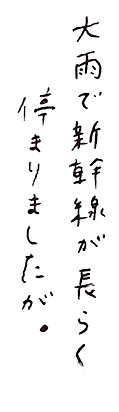 大雨で新幹線が長らく
停まりましたが。